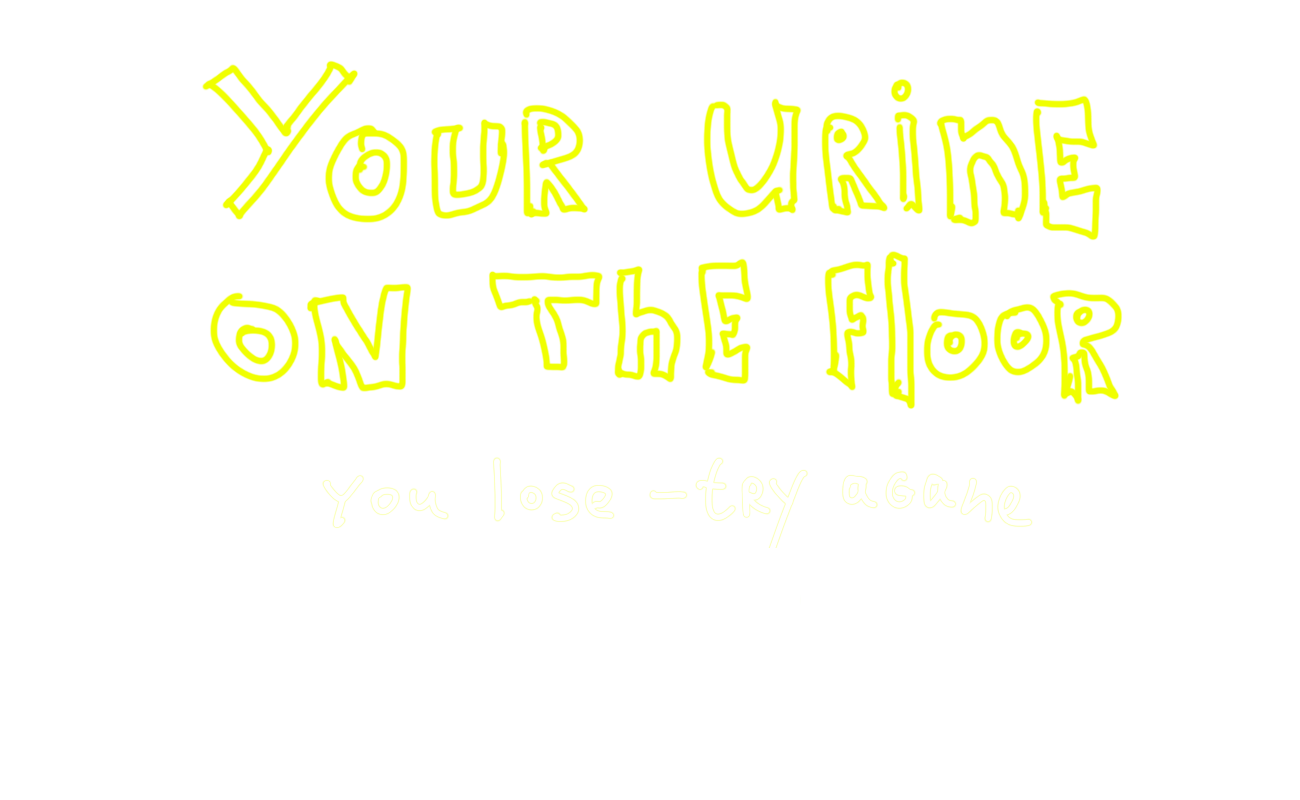 YOUR URINE
ON ThE FlOOR
you lose - tRy agane